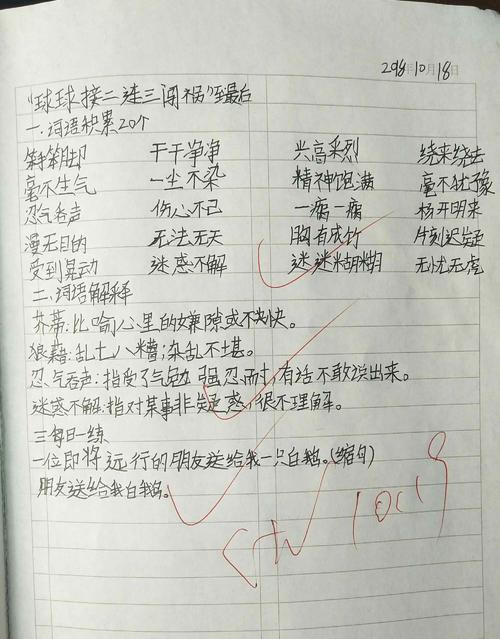 298年10月18日
“球球接二连三闯祸”至最后
一.词语积累20个
笨笨脚 干干净净 兴高采烈 绕来绕去
毫不生气 一尘不染 精神饱满 毫不犹豫
忍气吞声 伤心不已 一瘸一瘸 杨开明来
漫无目的 无法无天 胸有成竹 片刻迟疑
受到晃动 迷惑不解 迷迷糊糊 无忧无虑
二、词语解释
芥蒂:比喻心里的嫌隙或不快。
狼藉:乱七八糟;杂乱不堪。
忍气吞声:指受了气勉强忍耐,有话不敢说出来。
迷惑不解:指对某事非疑惑,很不理解。
三每日一练
一位即将远行的朋友送给我一只白鹅。(缩句)
朋友送给我白鹅。